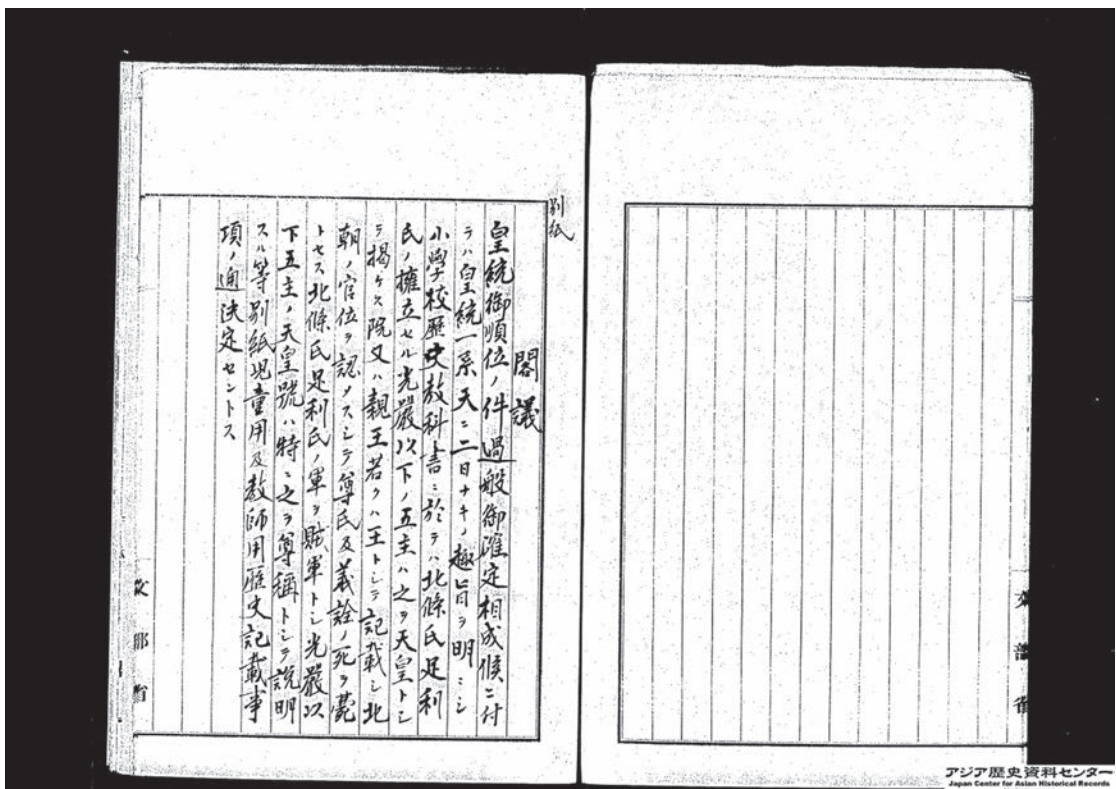 別紙
閣議
皇統御順位ノ件過般御確定相成候ニ付
テハ皇統一系天ニ二日ナキノ趣旨ヲ明ニシ
小學校歴史教科書ニ於テハ北條氏足利
氏ノ擁立セル光嚴以下ノ五主ハ之ヲ天皇トシ
テ揭ケス院又ハ親王若クハ王トシテ記載シ北
朝ノ官位ヲ認メスシテ尊氏及義詮ノ死ヲ薨
トセス北條氏足利氏ノ軍ヲ賊軍トシ光嚴以
下五主ノ天皇號ハ特ニ之ヲ尊稱トシテ說明
スル等別紙児童用及教師用歴史記載事
項ノ通決定セントス
文部省
アジア歴史資料センター
Japan Center for Asian Historical Records